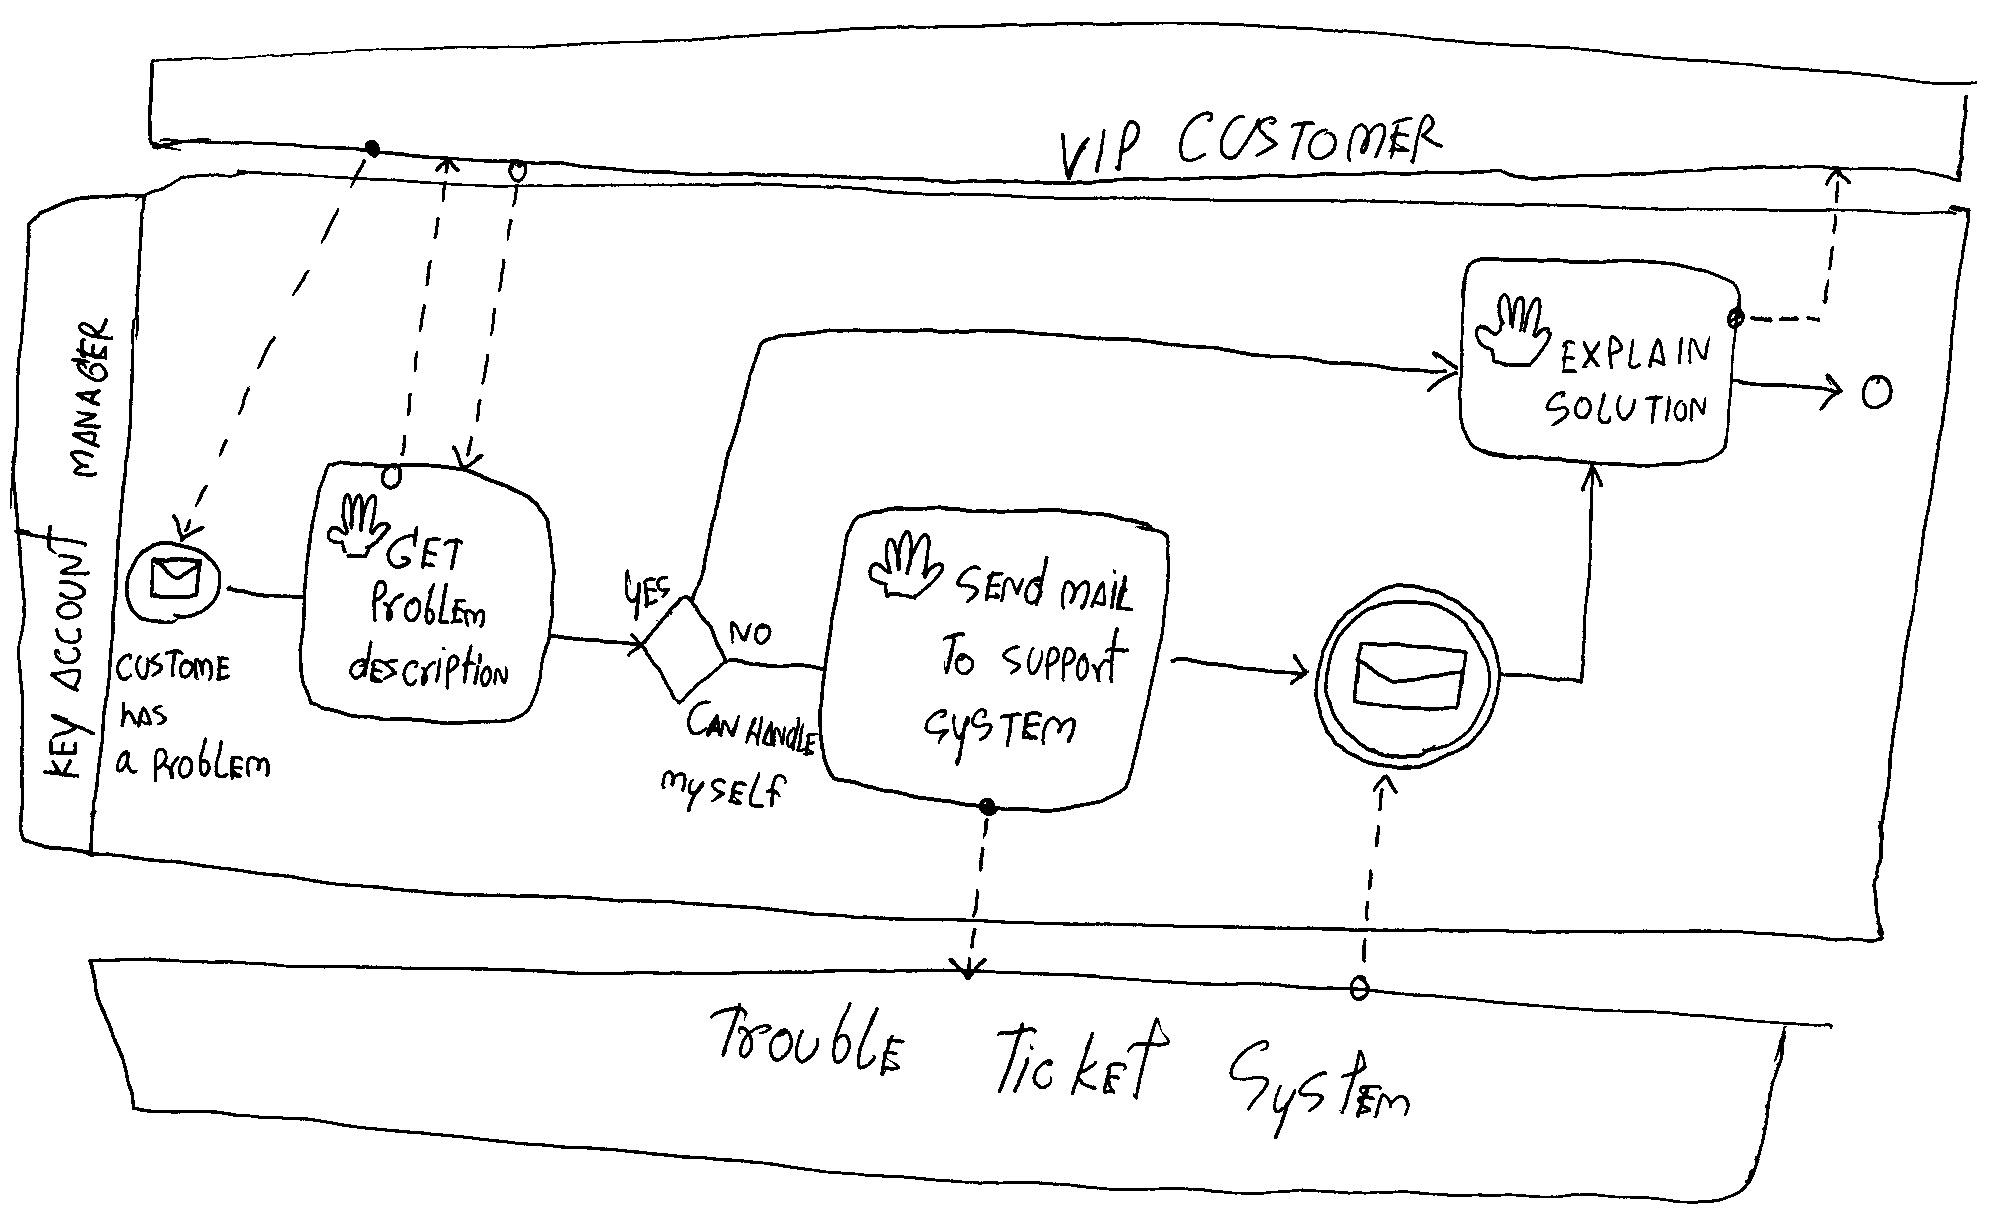 VIP CUSTOMER
KEY ACCOUNT MANAGER
CUSTOME
HAS
a PROBLEM
GET
PROBLEM
description
YES
NO
CAN HANDLE
MYSELF
SEND MAIL
TO SUPPORT
SYSTEM
EXPLAIN
SOLUTION
TROUBLE TICKET SYSTEM